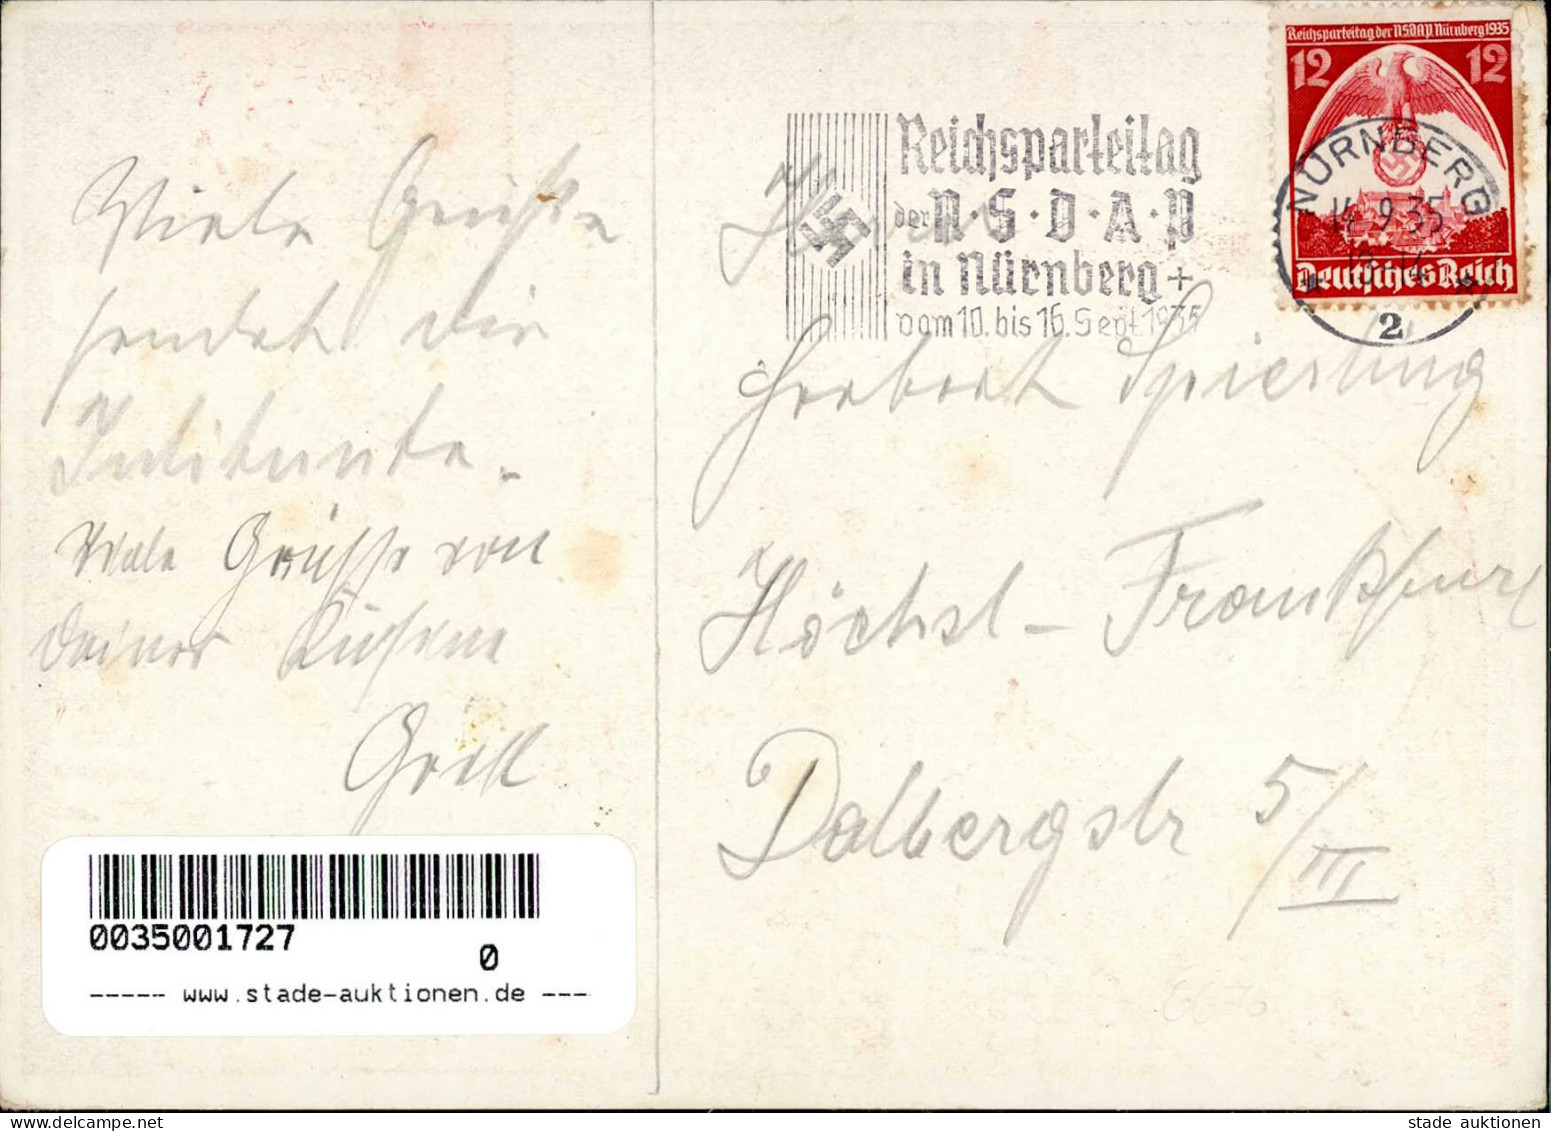 Viele Grüße
sendet dir
Viele Grüsse von
deiner Kusine
Gretl
0035001727
0
----- www.stade-auktionen.de ---
Reichsparteitag
der N·S·D·A·P
in Nürnberg +
vom 10. bis 16. Sept. 1935
Reichsparteitag der N.S.D.A.P. Nürnberg 1935
12 12
NÜRNBERG
14.9.35
Deutsches Reich
2
Herrn
Spierling
Höchst - Frankfurt
Dalbergstr 5/III
stade auktionen